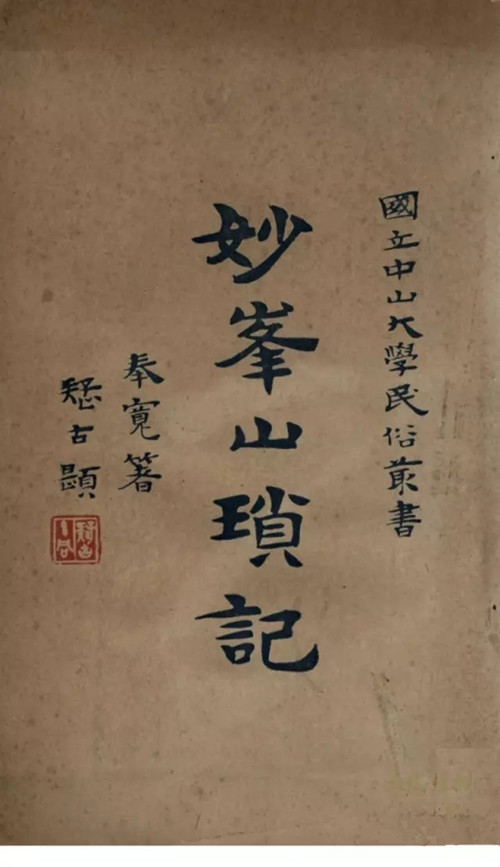 國立中山大學民俗叢書
妙峯山瑣記
奉寬箸
疑古題